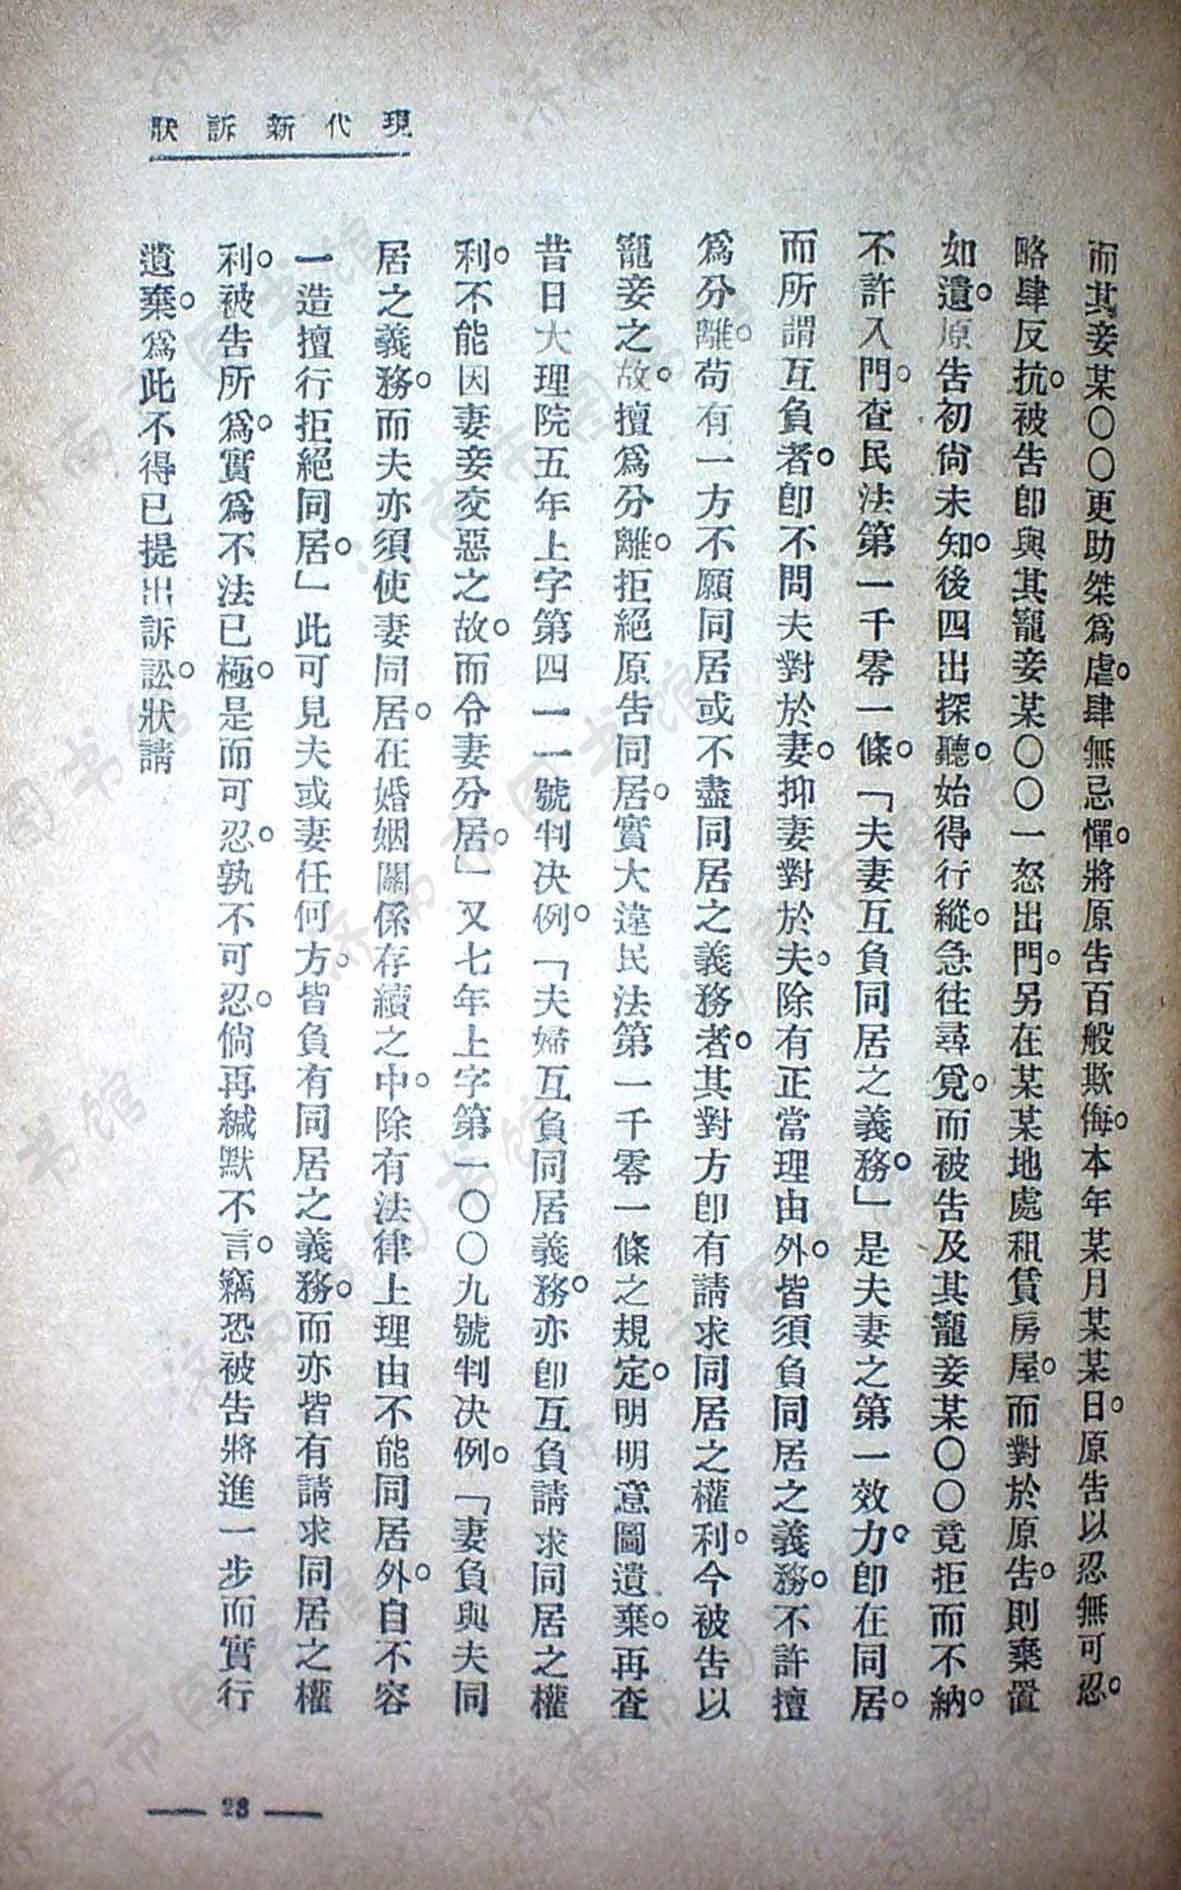 現代新訴狀
而其妾某〇〇更助桀爲虐。肆無忌憚。將原告百般欺侮。本年某月某某日。原告以忍無可忍。
略肆反抗。被告卽與其寵妾某〇〇一怒出門。另在某某地處租賃房屋。而對於原告。則棄置
如遺。原告初尙未知。後四出探聽。始得行縱。急往尋覓。而被告及其寵妾某〇〇竟拒而不納。
不許入門。查民法第一千零一條。「夫妻互負同居之義務。」是夫妻之第一效力。卽在同居。
而所謂互負者。卽不問夫對於妻。抑妻對於夫。除有正當理由外。皆須負同居之義務。不許擅
爲分離。苟有一方不願同居或不盡同居之義務者。其對方卽有請求同居之權利。今被告以
寵妾之故。擅爲分離。拒絕原告同居。實大違民法第一千零一條之規定。明明意圖遺棄。再查
昔日大理院五年上字第四一一號判決例。「夫婦互負同居義務。亦卽互負請求同居之權
利。不能因妻妾交惡之故。而令妻分居。」又七年上字第一〇〇九號判決例。「妻負與夫同
居之義務。而夫亦須使妻同居。在婚姻關係存續之中。除有法律上理由不能同居外。自不容
一造擅行拒絕同居。」此可見夫或妻任何方。皆負有同居之義務。而亦皆有請求同居之權
利。被告所爲。實爲不法已極。是而可忍。孰不可忍。倘再緘默不言。竊恐被告將進一步而實行
遺棄。爲此不得已提出訴訟。狀請
— 28 —
济南市图书馆